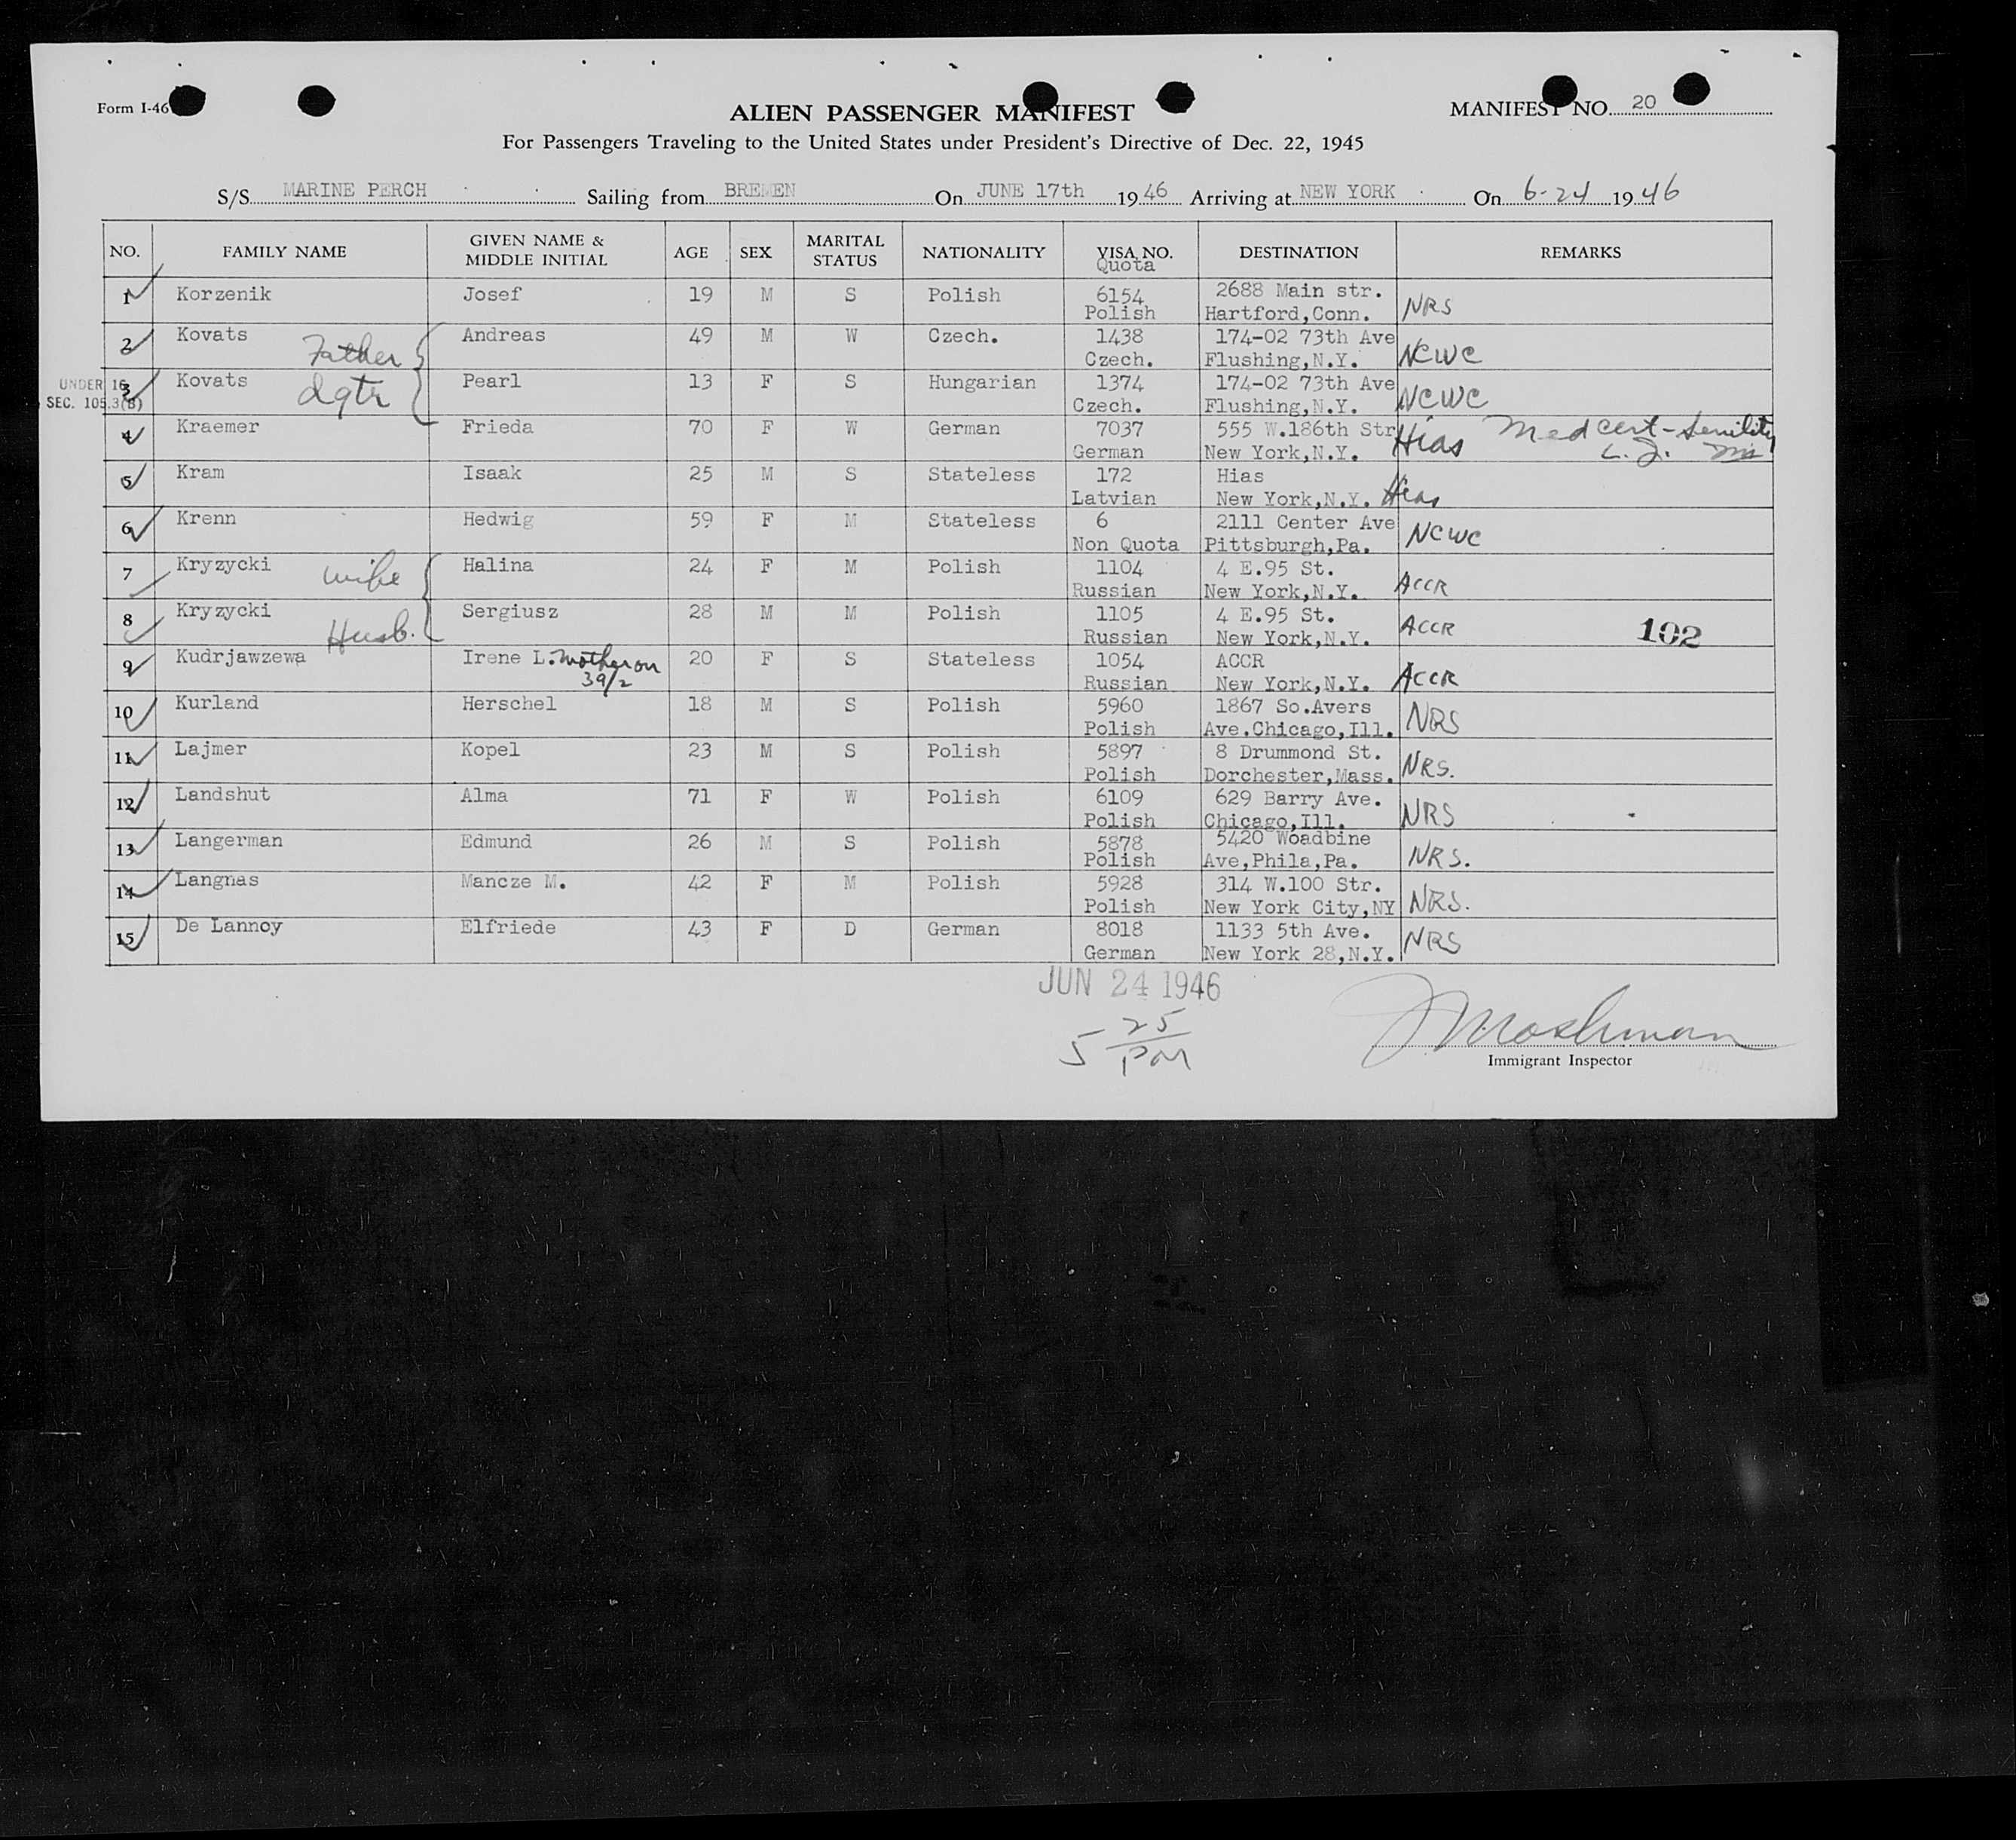 Form I-46
ALIEN PASSENGER MANIFEST
MANIFEST NO. 20
For Passengers Traveling to the United States under President's Directive of Dec. 22, 1945
S/S MARINE PERCH Sailing from BREMEN On JUNE 17th 1946 Arriving at NEW YORK On 6-24 1946
NO. FAMILY NAME GIVEN NAME & MIDDLE INITIAL AGE SEX MARITAL STATUS NATIONALITY VISA NO. Quota DESTINATION REMARKS
1 Korzenik Josef 19 M S Polish 6154 2688 Main str.
Polish Hartford,Conn. NRS
2 Kovats Father Andreas 49 M W Czech. 1438 174-02 73th Ave
Czech. Flushing,N.Y. NCWC
UNDER 16
SEC. 105.3(B)
3 Kovats dgtr Pearl 13 F S Hungarian 1374 174-02 73th Ave
Czech. Flushing,N.Y. NCWC
4 Kraemer Frieda 70 F W German 7037 555 W.186th Str Hias Med cert - Senility
German New York,N.Y.
5 Kram Isaak 25 M S Stateless 172 Hias
Latvian New York,N.Y. Hias
6 Krenn Hedwig 59 F M Stateless 6 2111 Center Ave
Non Quota Pittsburgh,Pa. NCWC
7 Kryzycki wife Halina 24 F M Polish 1104 4 E.95 St.
Russian New York,N.Y. ACCR
8 Kryzycki Husb. Sergiusz 28 M M Polish 1105 4 E.95 St. ACCR 102
Russian New York,N.Y.
9 Kudrjawzewa Irene L. Mother on 39/2 20 F S Stateless 1054 ACCR
Russian New York,N.Y. ACCR
10 Kurland Herschel 18 M S Polish 5960 1867 So.Avers
Polish Ave.Chicago,Ill. NRS
11 Lajmer Kopel 23 M S Polish 5897 8 Drummond St.
Polish Dorchester,Mass. NRS.
12 Landshut Alma 71 F W Polish 6109 629 Barry Ave.
Polish Chicago,Ill. NRS
13 Langerman Edmund 26 M S Polish 5878 5420 Woadbine
Polish Ave,Phila,Pa. NRS.
14 Langnas Mancze M. 42 F M Polish 5928 314 W.100 Str.
Polish New York City,NY NRS.
15 De Lannoy Elfriede 43 F D German 8018 1133 5th Ave.
German New York 28,N.Y. NRS
JUN 24 1946
5 25 PM
Moshman
Immigrant Inspector